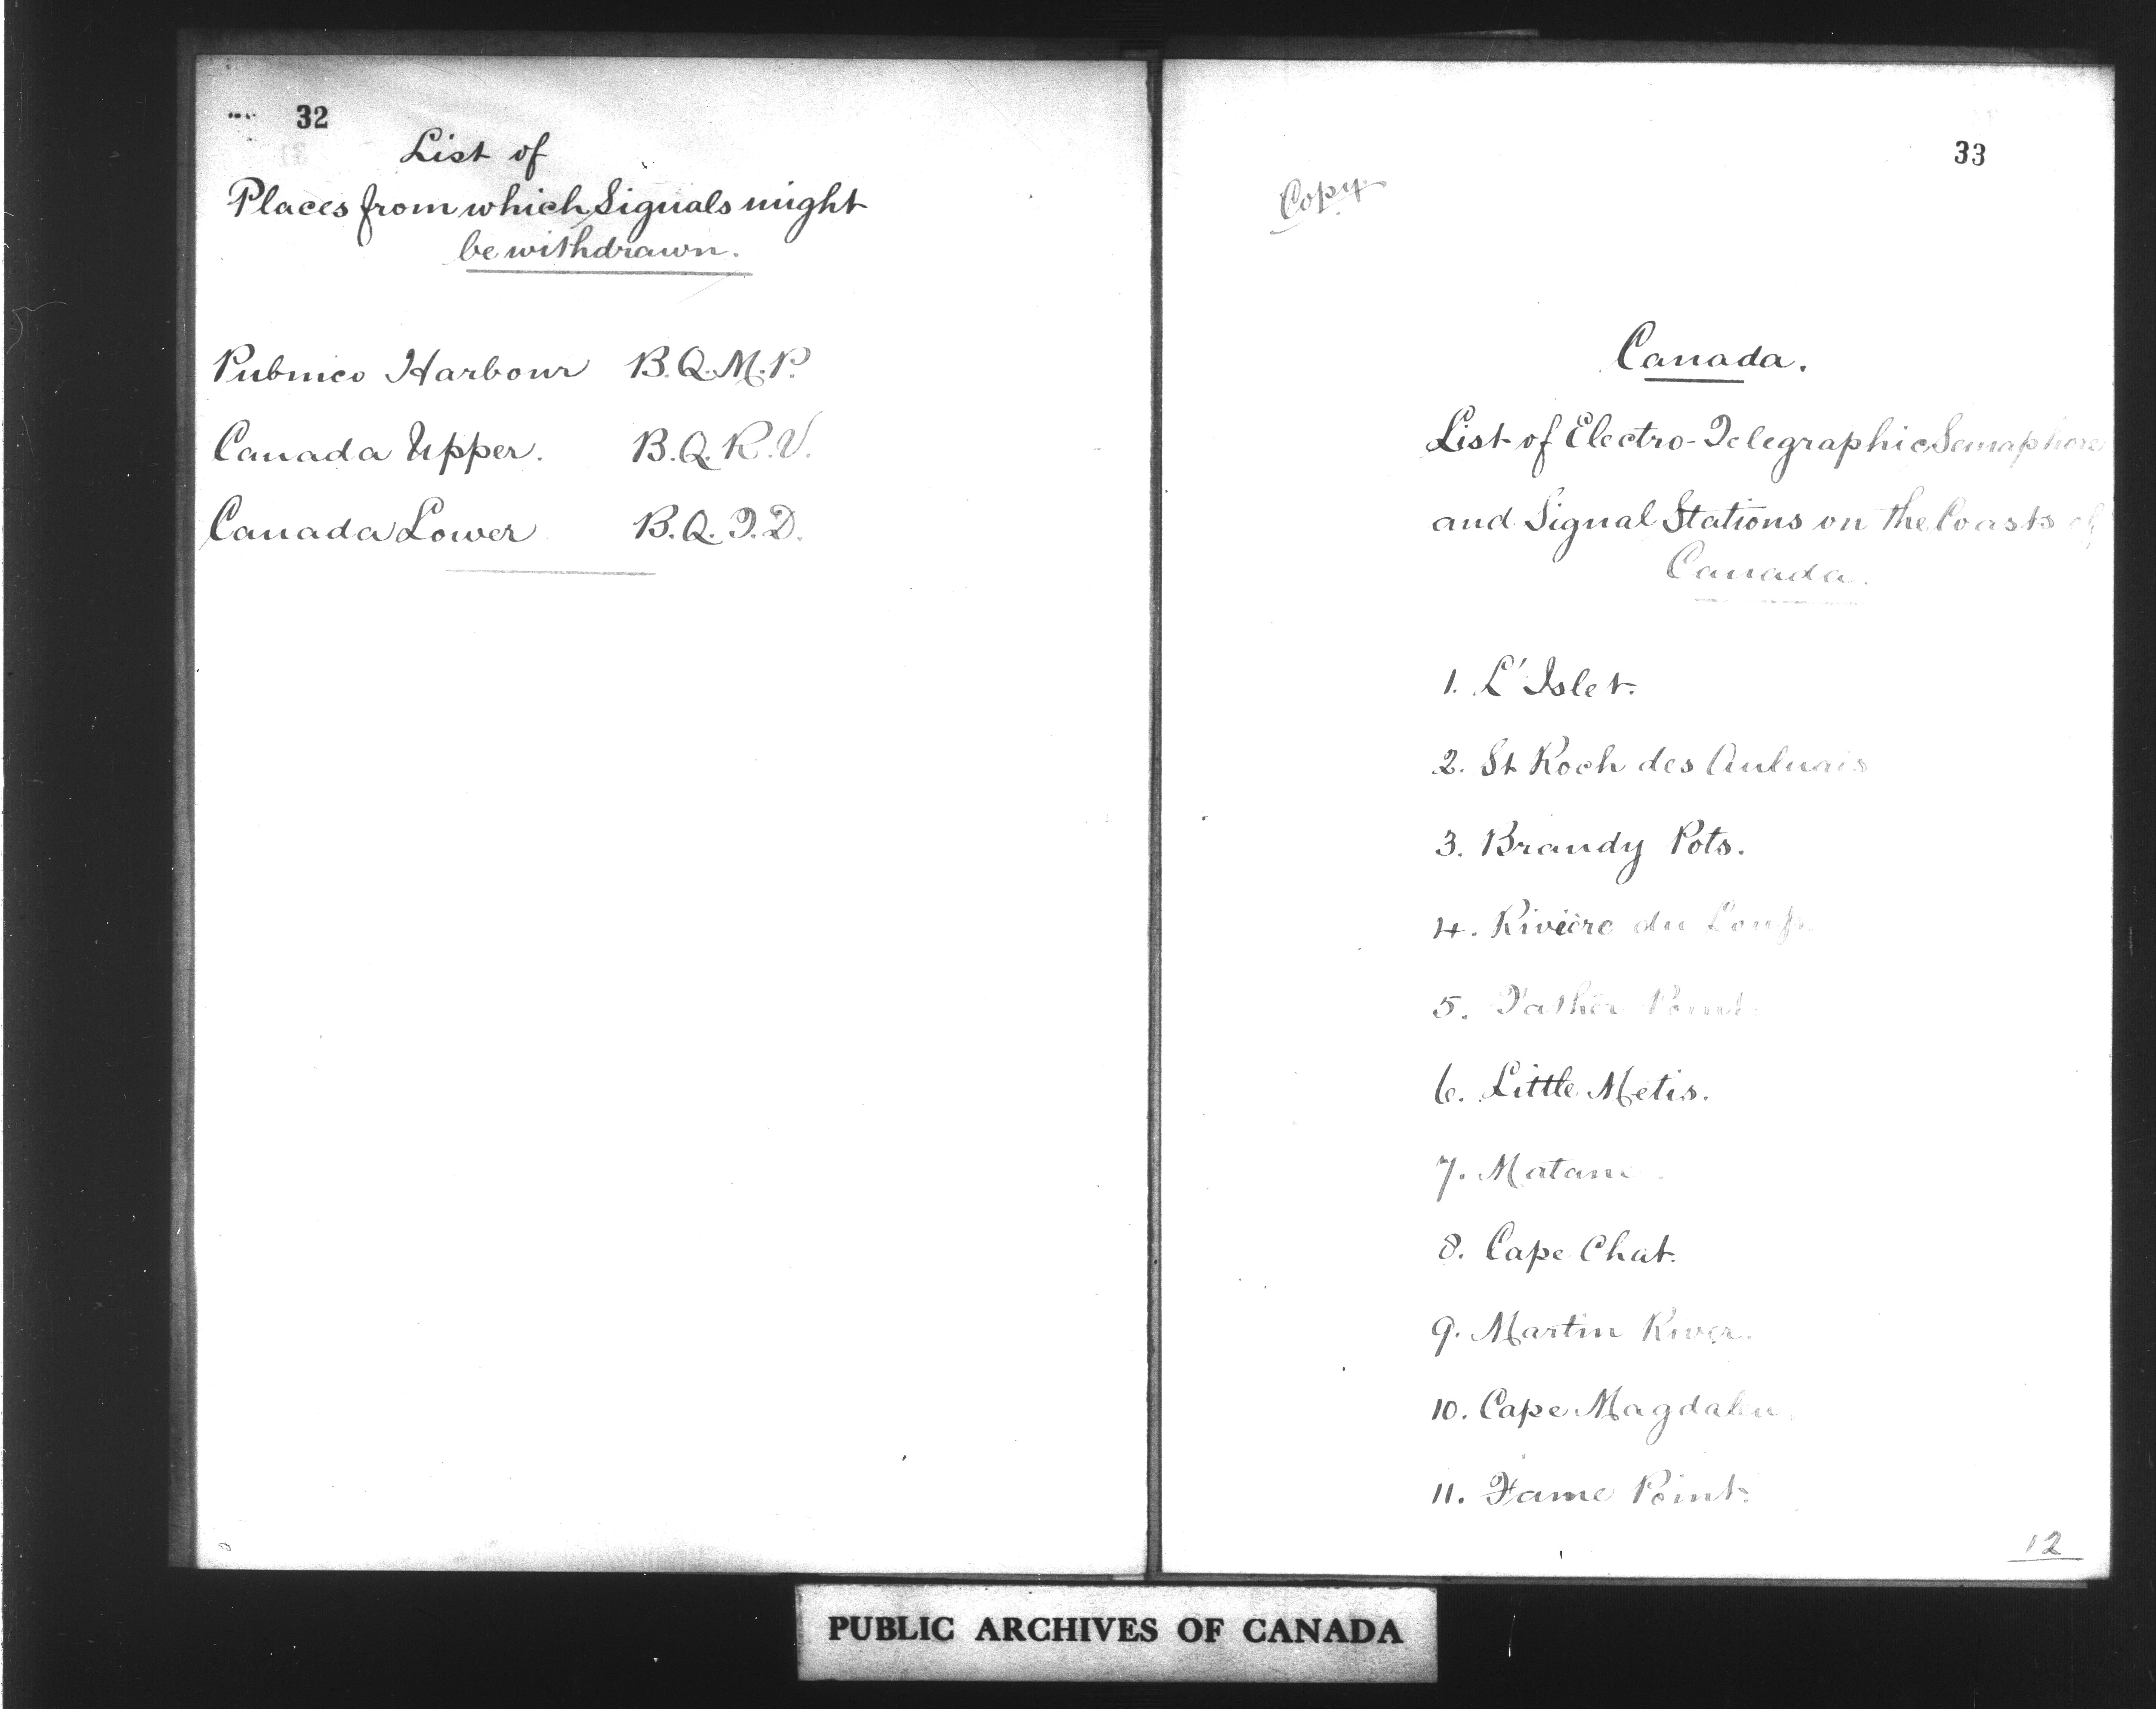 32
List of
Places from which Signals might
be withdrawn.
Pubnico Harbour B.Q.M.P.
Canada Upper. B.Q.R.V.
Canada Lower B.Q.T.D.
33
Copy
Canada.
List of Electro-Telegraphic Semaphore
and Signal Stations on the Coasts of
Canada.
1. L'Islet.
2. St Roch des Aulnais
3. Brandy Pots.
4. Rivière du Loup.
5. Father Point.
6. Little Metis.
7. Matane.
8. Cape Chat.
9. Martin River.
10. Cape Magdalen.
11. Fame Point.
12
PUBLIC ARCHIVES OF CANADA